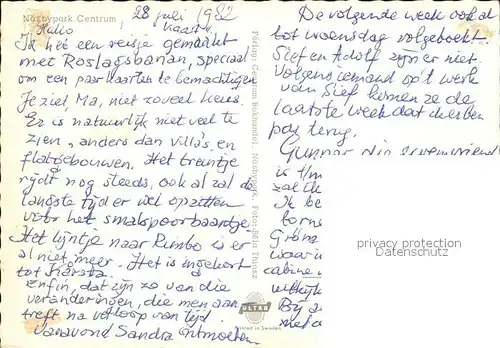 Näsbypark Centrum,
28 juli 1982
Hallo
Ik heb een reisje gemaakt
met Roslagsbanan, speciaal
om een paar kaarten te bemachtigen
Je ziet, Ma, niet zoveel keus.
Er is natuurlijk niet veel te
zien, anders dan villa's en
flatgebouwen. Het treintje
rijdt nog steeds, ook al zal de
langste tijd er wel opzitten
voor het smalspoorbaantje
Het lijntje naar Rimbo is er
al niet meer. Het is ingekort
tot Kårsta.
Enfin, dat zijn zo van die
veranderingen, die men aan-
treft na verloop van tijd.
Vanavond Sandra ontmoeten
Förlag: Centrum Bokhandel, Näsbypark.
ULTRA
Printed in Sweden
De volgende week ook al
tot woensdag volgeboekt.
Sief en Adolf zijn er niet.
Volgens iemand op 't werk
van Sief komen ze de
laatste week dat ik er ben
pas terug.
Gunnar
is
Ik be
waar
cabine
Bij
met
privacy protection
Datenschutz